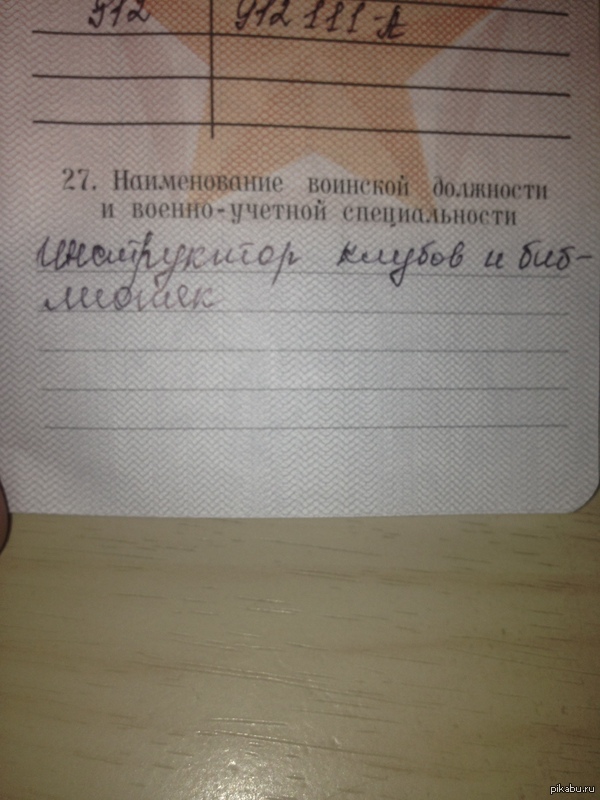 912 912111-А
27. Наименование воинской должности
и военно-учетной специальности
Инструктор клубов и биб-
лиотек
pikabu.ru